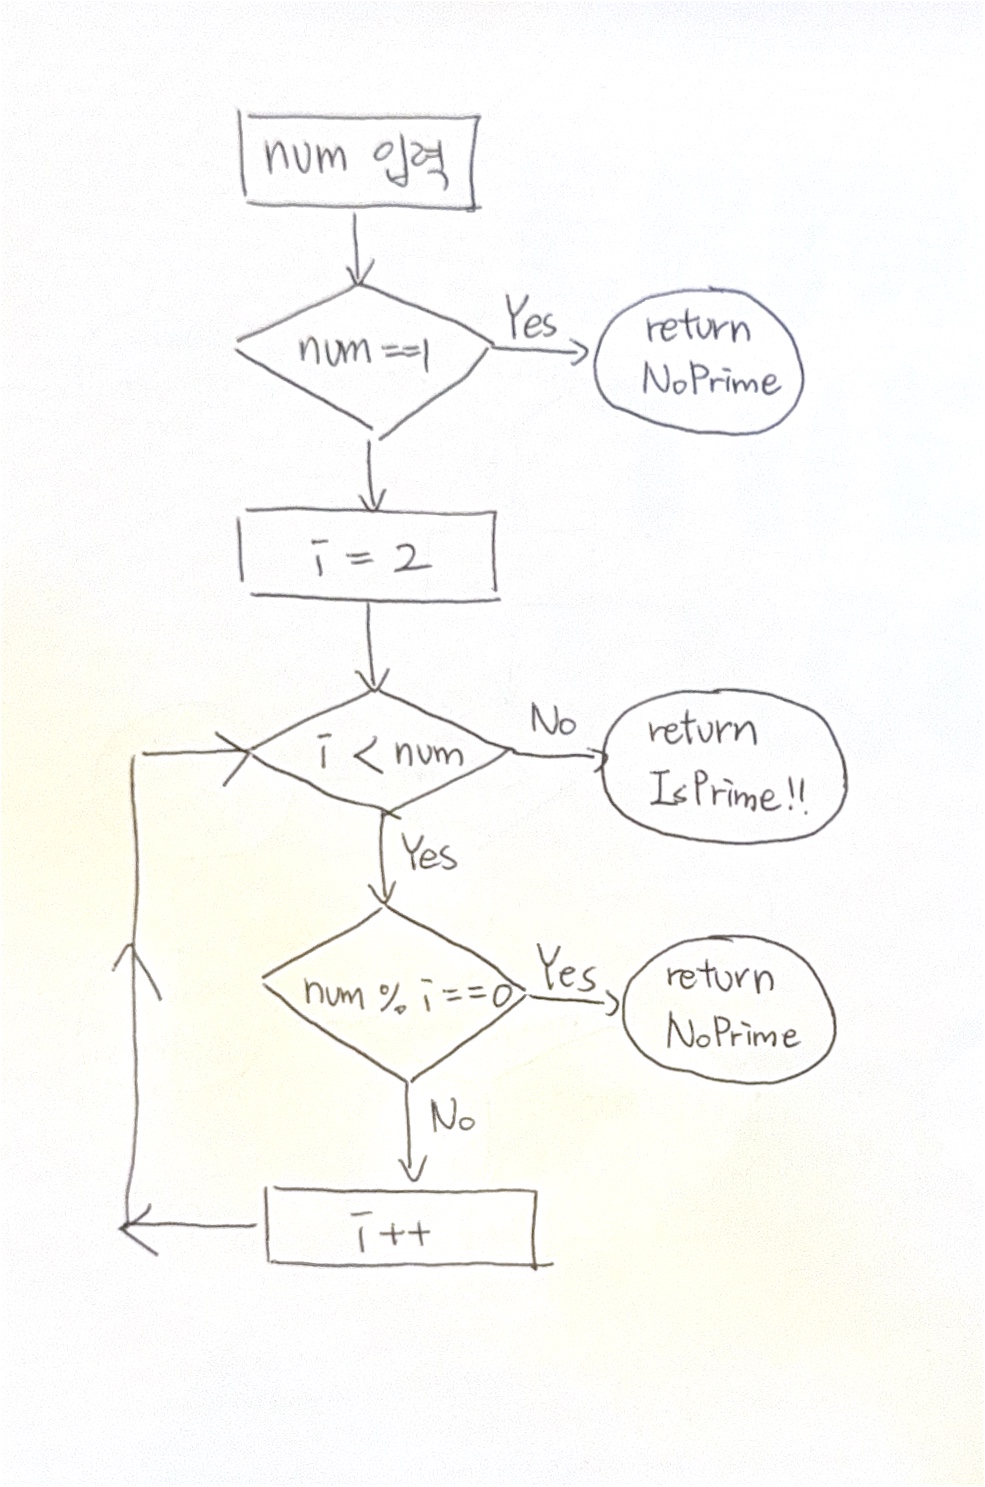 num 입력
num==1
Yes
return
NoPrime
i = 2
i < num
No
return
IsPrime!!
Yes
num % i==0
Yes
return
NoPrime
No
i++